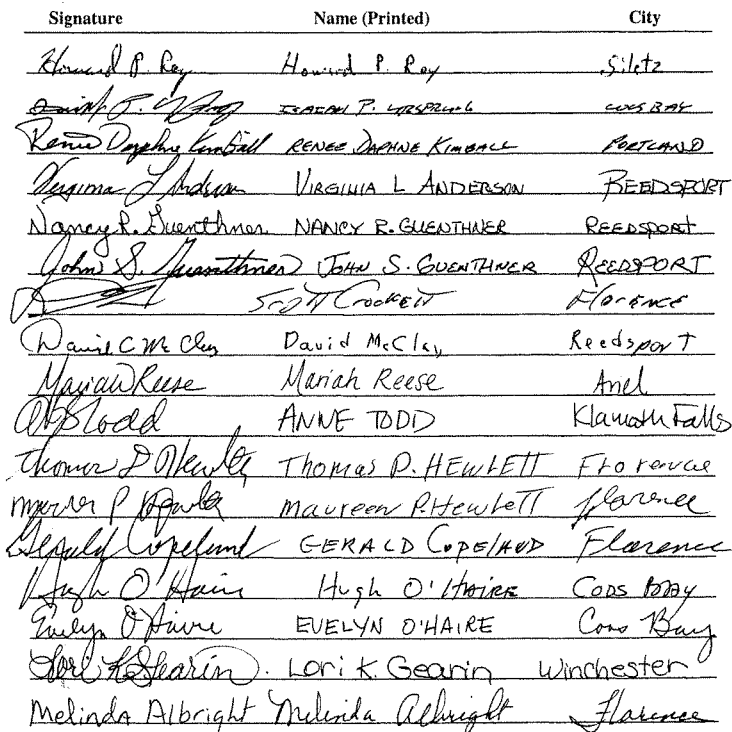 Signature Name (Printed) City
Howard P. Roy Howard P. Roy Siletz
ISAIAH P. COOS BAY
Renee Daphne Kimball RENEE DAPHNE KIMBALL PORTLAND
Virginia L Anderson VIRGINIA L ANDERSON REEDSPORT
Nancy R. Guenthner NANCY R. GUENTHNER REEDSPORT
John S. Guenthner JOHN S. GUENTHNER REEDSPORT
Scott Crockett Florence
David C McClay David McClay Reedsport
Mariah Reese Mariah Reese
Todd ANNE TODD Klamath Falls
Thomas D Hewlett Thomas D. HEWLETT Florence
P Hewlett Maureen P. Hewlett Florence
Gerald Copeland GERALD COPELAND Florence
Hugh O'Haire Hugh O'HAIRE COOS BAY
Evelyn O'Haire EVELYN O'HAIRE Coos Bay
Lori K Gearin. Lori K. Gearin Winchester
Melinda Albright Melinda Albright Florence